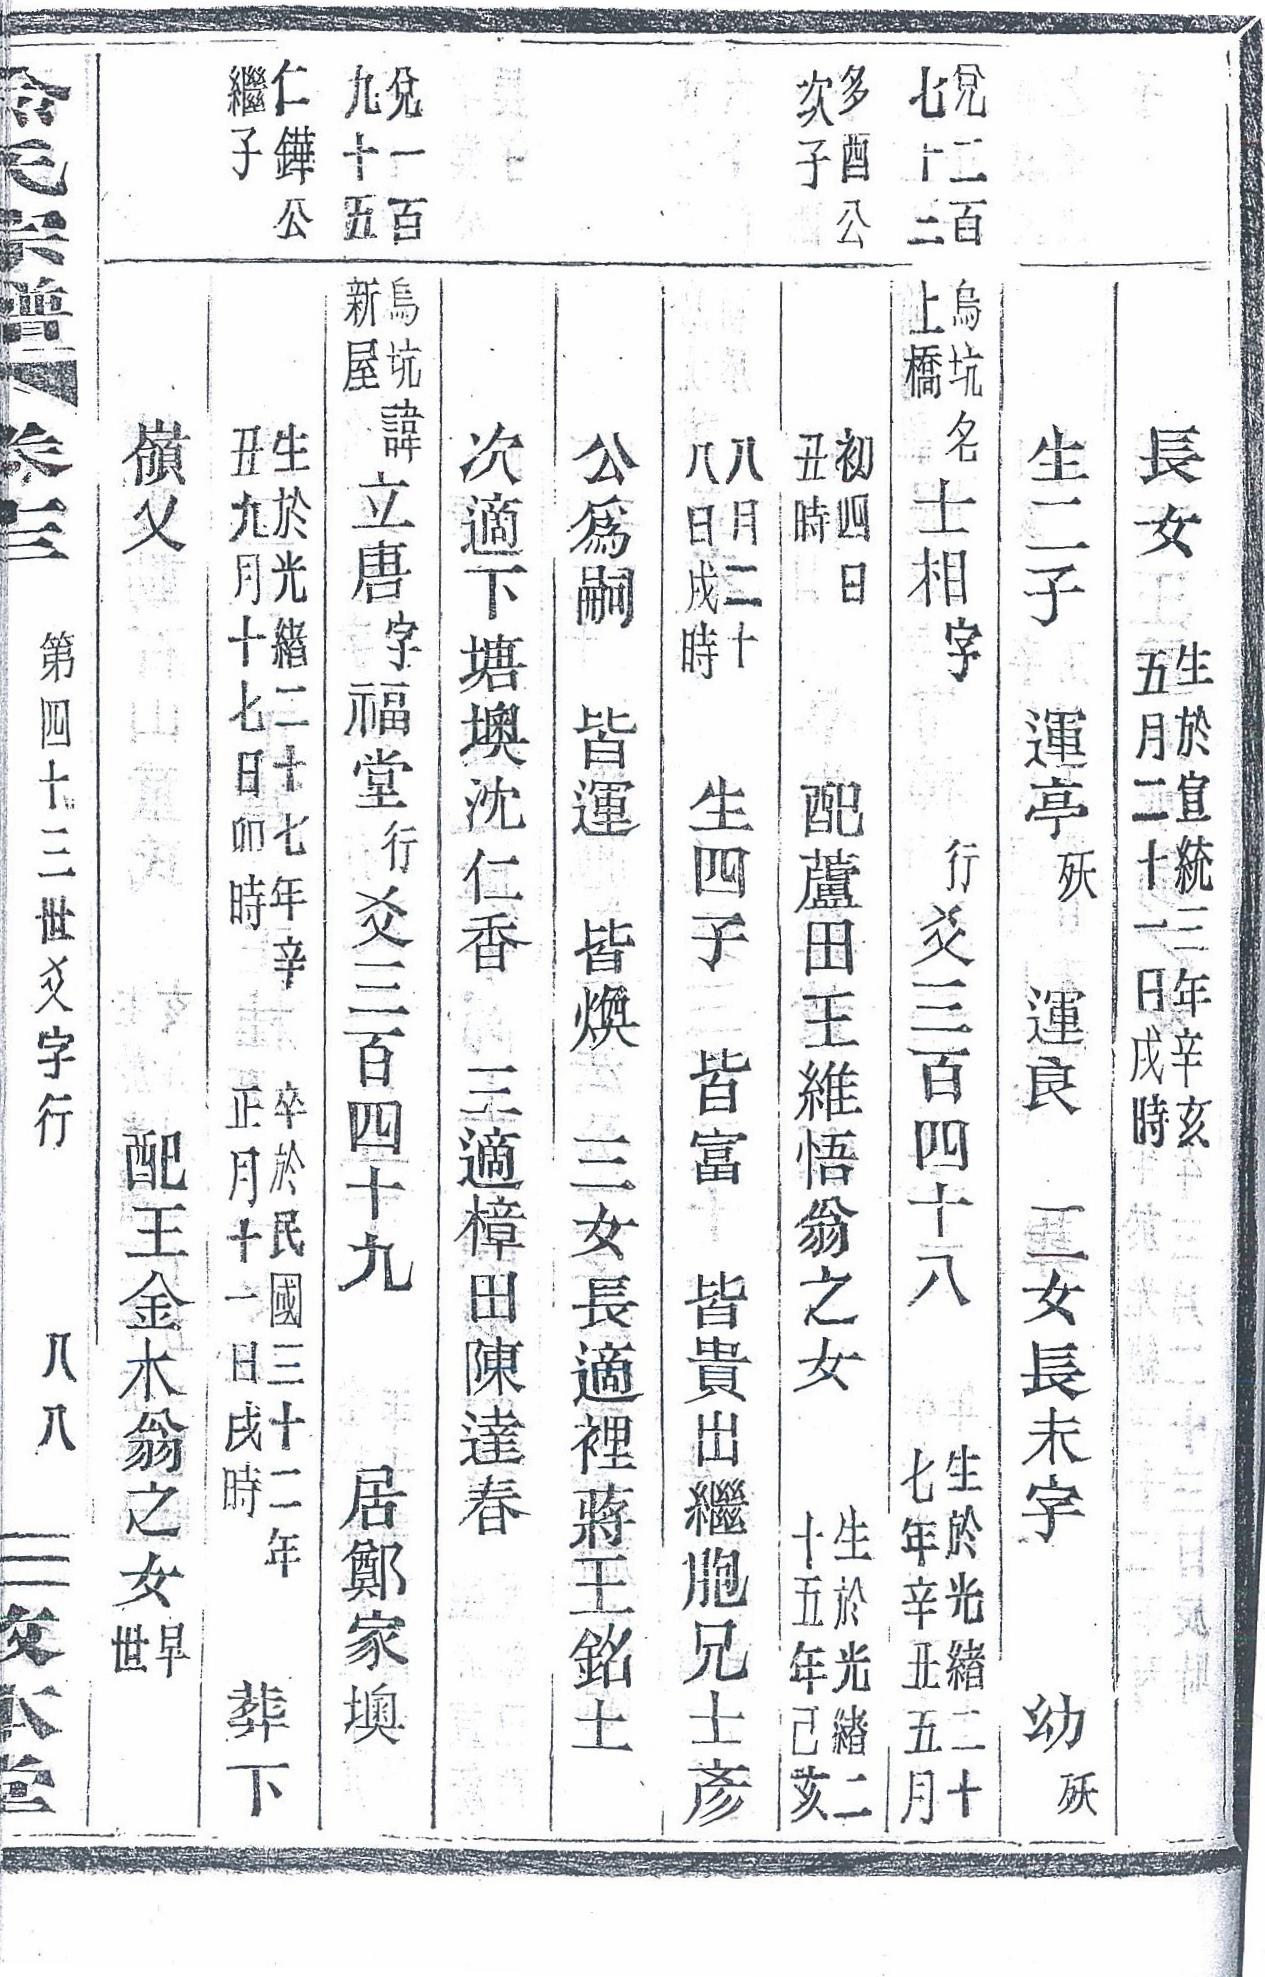 長女 生於宣統三年辛亥五月二十一日戌時
生二子 運亭 殀 運良 二女長未字 幼 殀
兌二百七十二
烏坑上橋 名士相 字 行爻三百四十八 生於光緒二十七年辛丑五月
多酉公次子
初四日丑時 配蘆田王維悟翁之女 生於光緒二十五年己亥
八月二十八日戌時 生四子 皆富 皆貴出繼胞兄士彥
公爲嗣 皆運 皆煥 三女長適裡蔣王銘土
次適下塘墺沈仁香 三適樟田陳達春
兌一百九十五
烏坑新屋 諱立唐 字福堂 行爻三百四十九 居鄭家墺
仁鏵公繼子
生於光緒二十七年辛丑九月十七日卯時 卒於民國三十二年正月十一日戌時 葬下
嶺乂 配王金木翁之女 早世
氏宗譜 卷三 第四十三世爻字行 八八 本堂